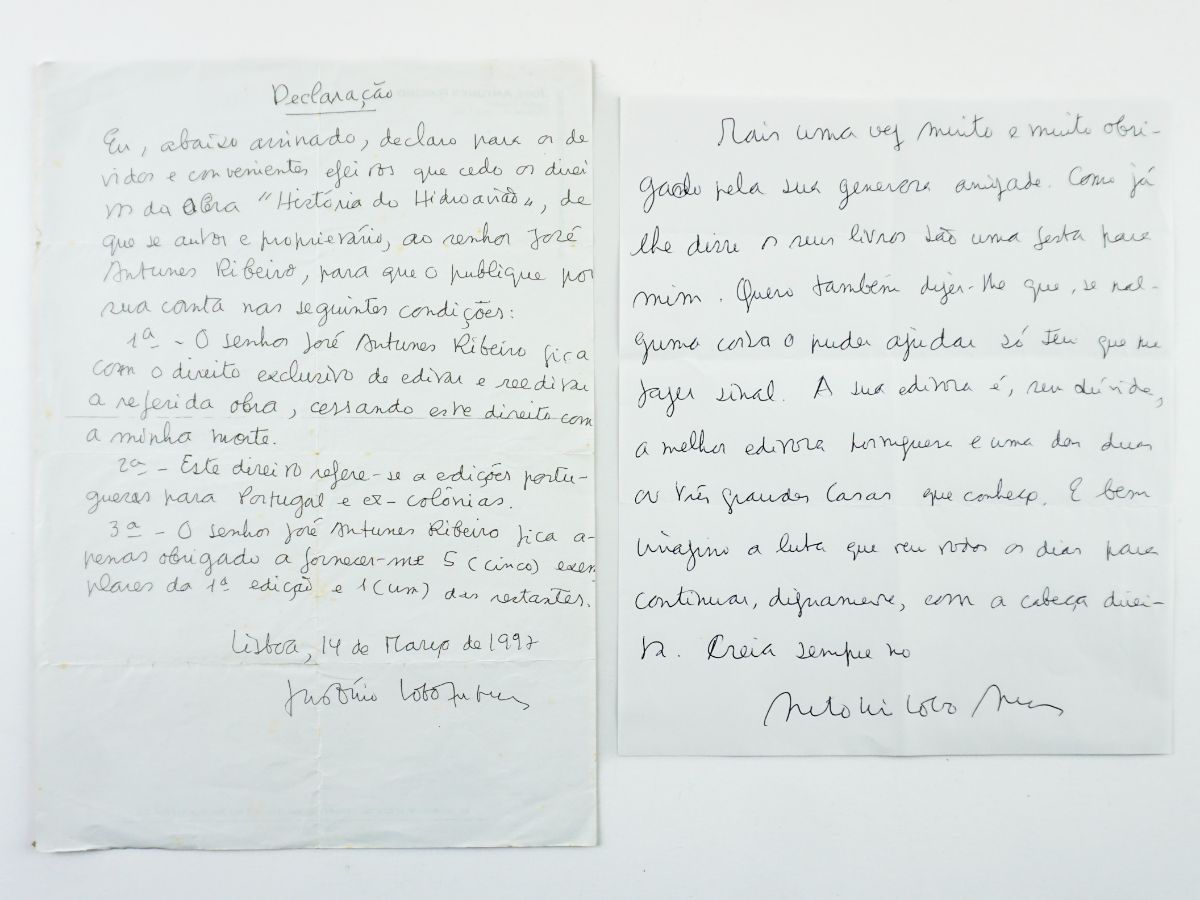 Declaração
Eu, abaixo assinado, declaro para os de
vidos e convenientes efeitos que cedo os direi
tos da obra "História do Hidroavião", de
que se autor e proprietário, ao senhor José
Antunes Ribeiro, para que o publique por
sua conta nas seguintes condições:
1ª - O senhor José Antunes Ribeiro fica
com o direito exclusivo de editar e reeditar
a referida obra, cessando este direito com
a minha morte.
2ª - Este direito refere-se a edições portu-
guesas para Portugal e ex-colónias.
3ª - O senhor José Antunes Ribeiro fica a-
penas obrigado a fornecer-me 5 (cinco) exem
plares da 1ª edição e 1 (um) das restantes.
Lisboa, 14 de Março de 1997
António Lobo Antunes
Mais uma vez muito e muito obri-
gado pela sua generosa amizade. Como já
lhe disse os seus livros são uma festa para
mim. Quero também dizer-lhe que, se nal-
guma coisa o puder ajudar só tem que me
fazer sinal. A sua editora é, sem dúvida,
a melhor editora portuguesa e uma das duas
ou três grandes casas que conheço. E bem
imagino a luta que tem todos os dias para
continuar, dignamente, com a cabeça direi-
ta. Creia sempre no
António Lobo Antunes